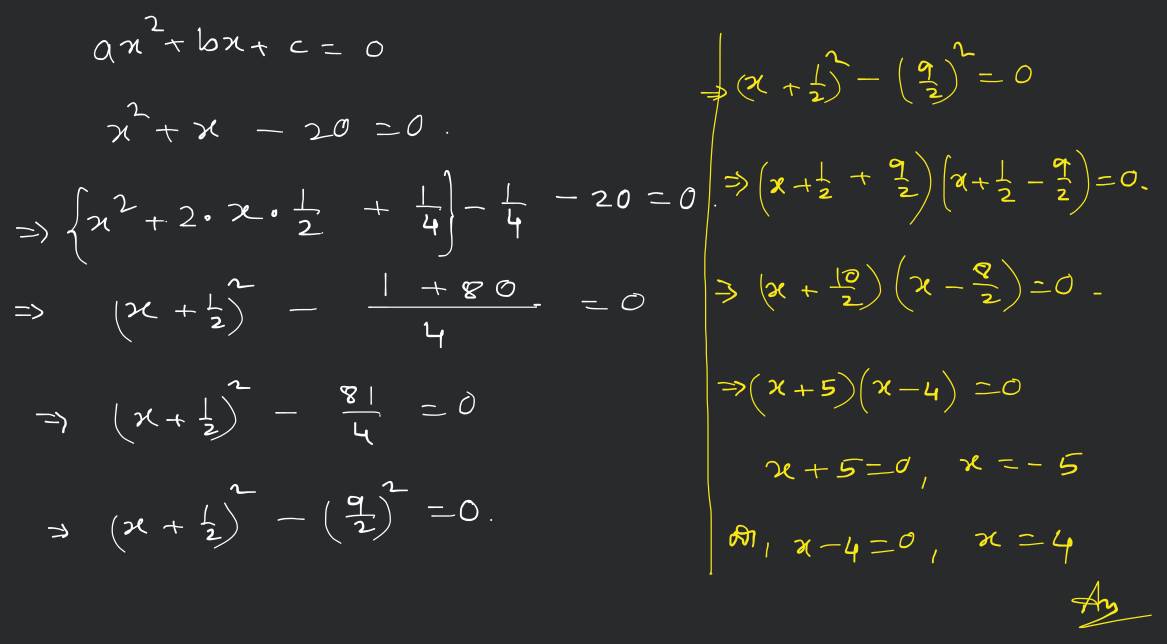 ax² + bx + c = 0
x² + x - 20 = 0.
⇒ {x² + 2·x·1/2 + 1/4} - 1/4 - 20 = 0.
⇒ (x + 1/2)² - (1 + 80)/4 = 0
⇒ (x + 1/2)² - 81/4 = 0
⇒ (x + 1/2)² - (9/2)² = 0.
⇒ (x + 1/2)² - (9/2)² = 0
⇒ (x + 1/2 + 9/2)(x + 1/2 - 9/2) = 0.
⇒ (x + 10/2)(x - 8/2) = 0.
⇒ (x + 5)(x - 4) = 0
x + 5 = 0, x = -5
বা, x - 4 = 0, x = 4
Ans